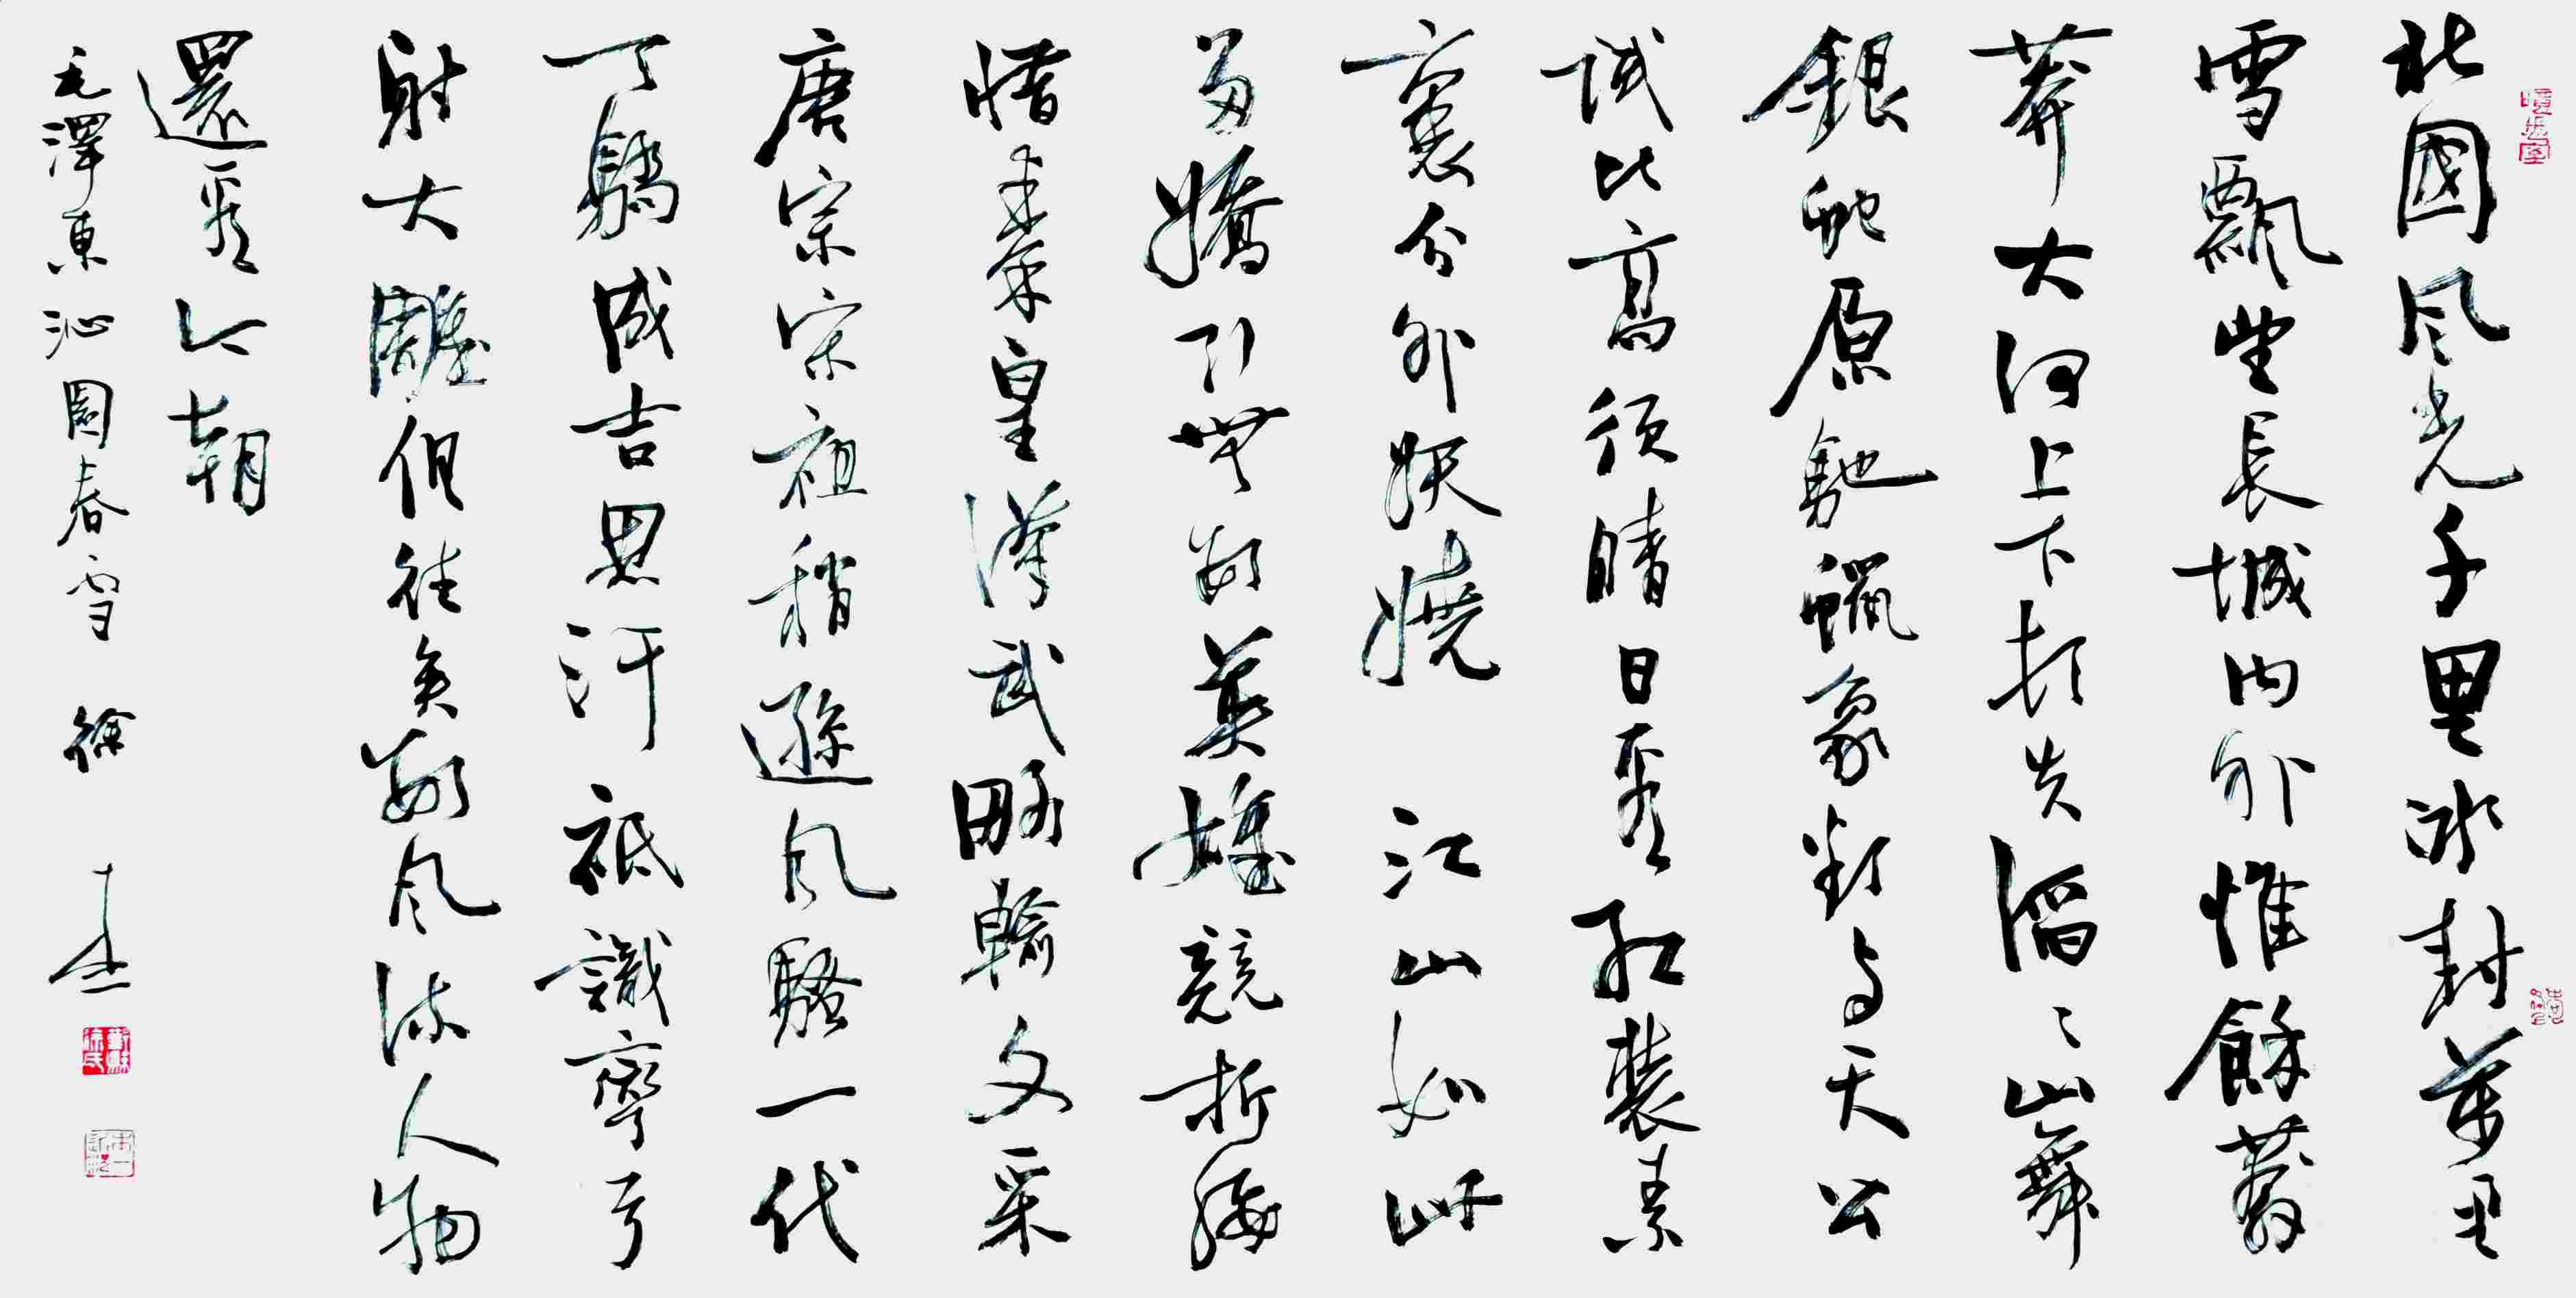 北國风光千里冰封萬里
雪飄望長城内外惟餘莽
莽大河上下頓失滔〻山舞
銀蛇原馳蠟象欲与天公
試比高須晴日看红裝素
裹分外妖嬈 江山如此
多嬌引無數英雄競折腰
惜秦皇漢武略輸文采
唐宗宋祖稍遜风騷一代
天驕成吉思汗祗識彎弓
射大雕俱往矣數风流人物
還看今朝
毛澤東沁園春雪 徐